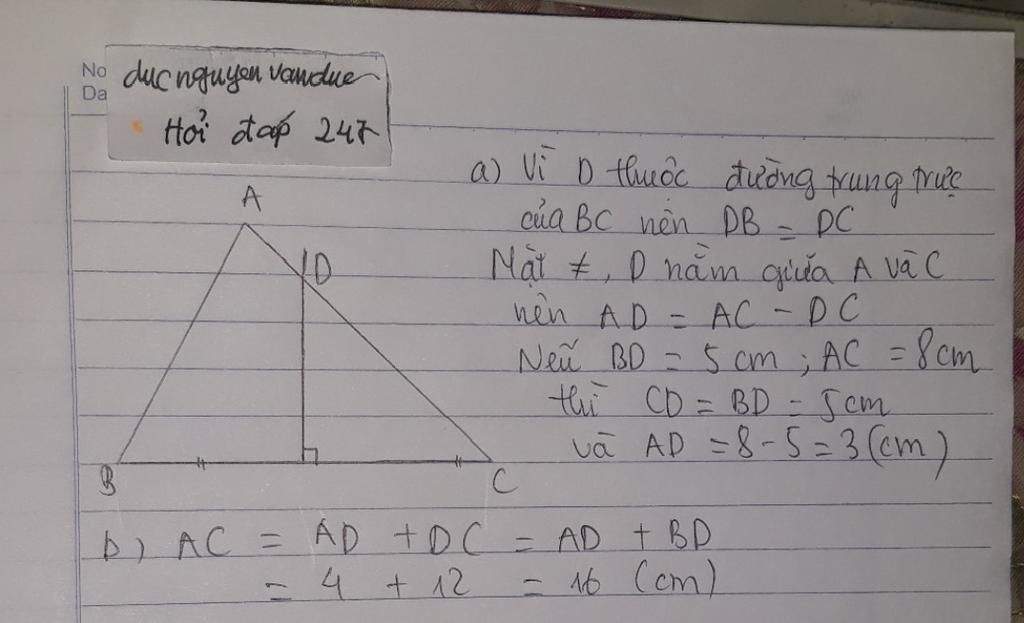 No
Da
ducnguyenvanduc
Hỏi đáp 247
a) Vì D thuộc đường trung trực
của BC nên DB = DC
Mặt ≠, D nằm giữa A và C
nên AD = AC - DC
Nếu BD = 5 cm ; AC = 8 cm
thì CD = BD = 5 cm
và AD = 8 - 5 = 3 (cm)
A
D
B
C
b) AC = AD + DC = AD + BD
= 4 + 12 = 16 (cm)